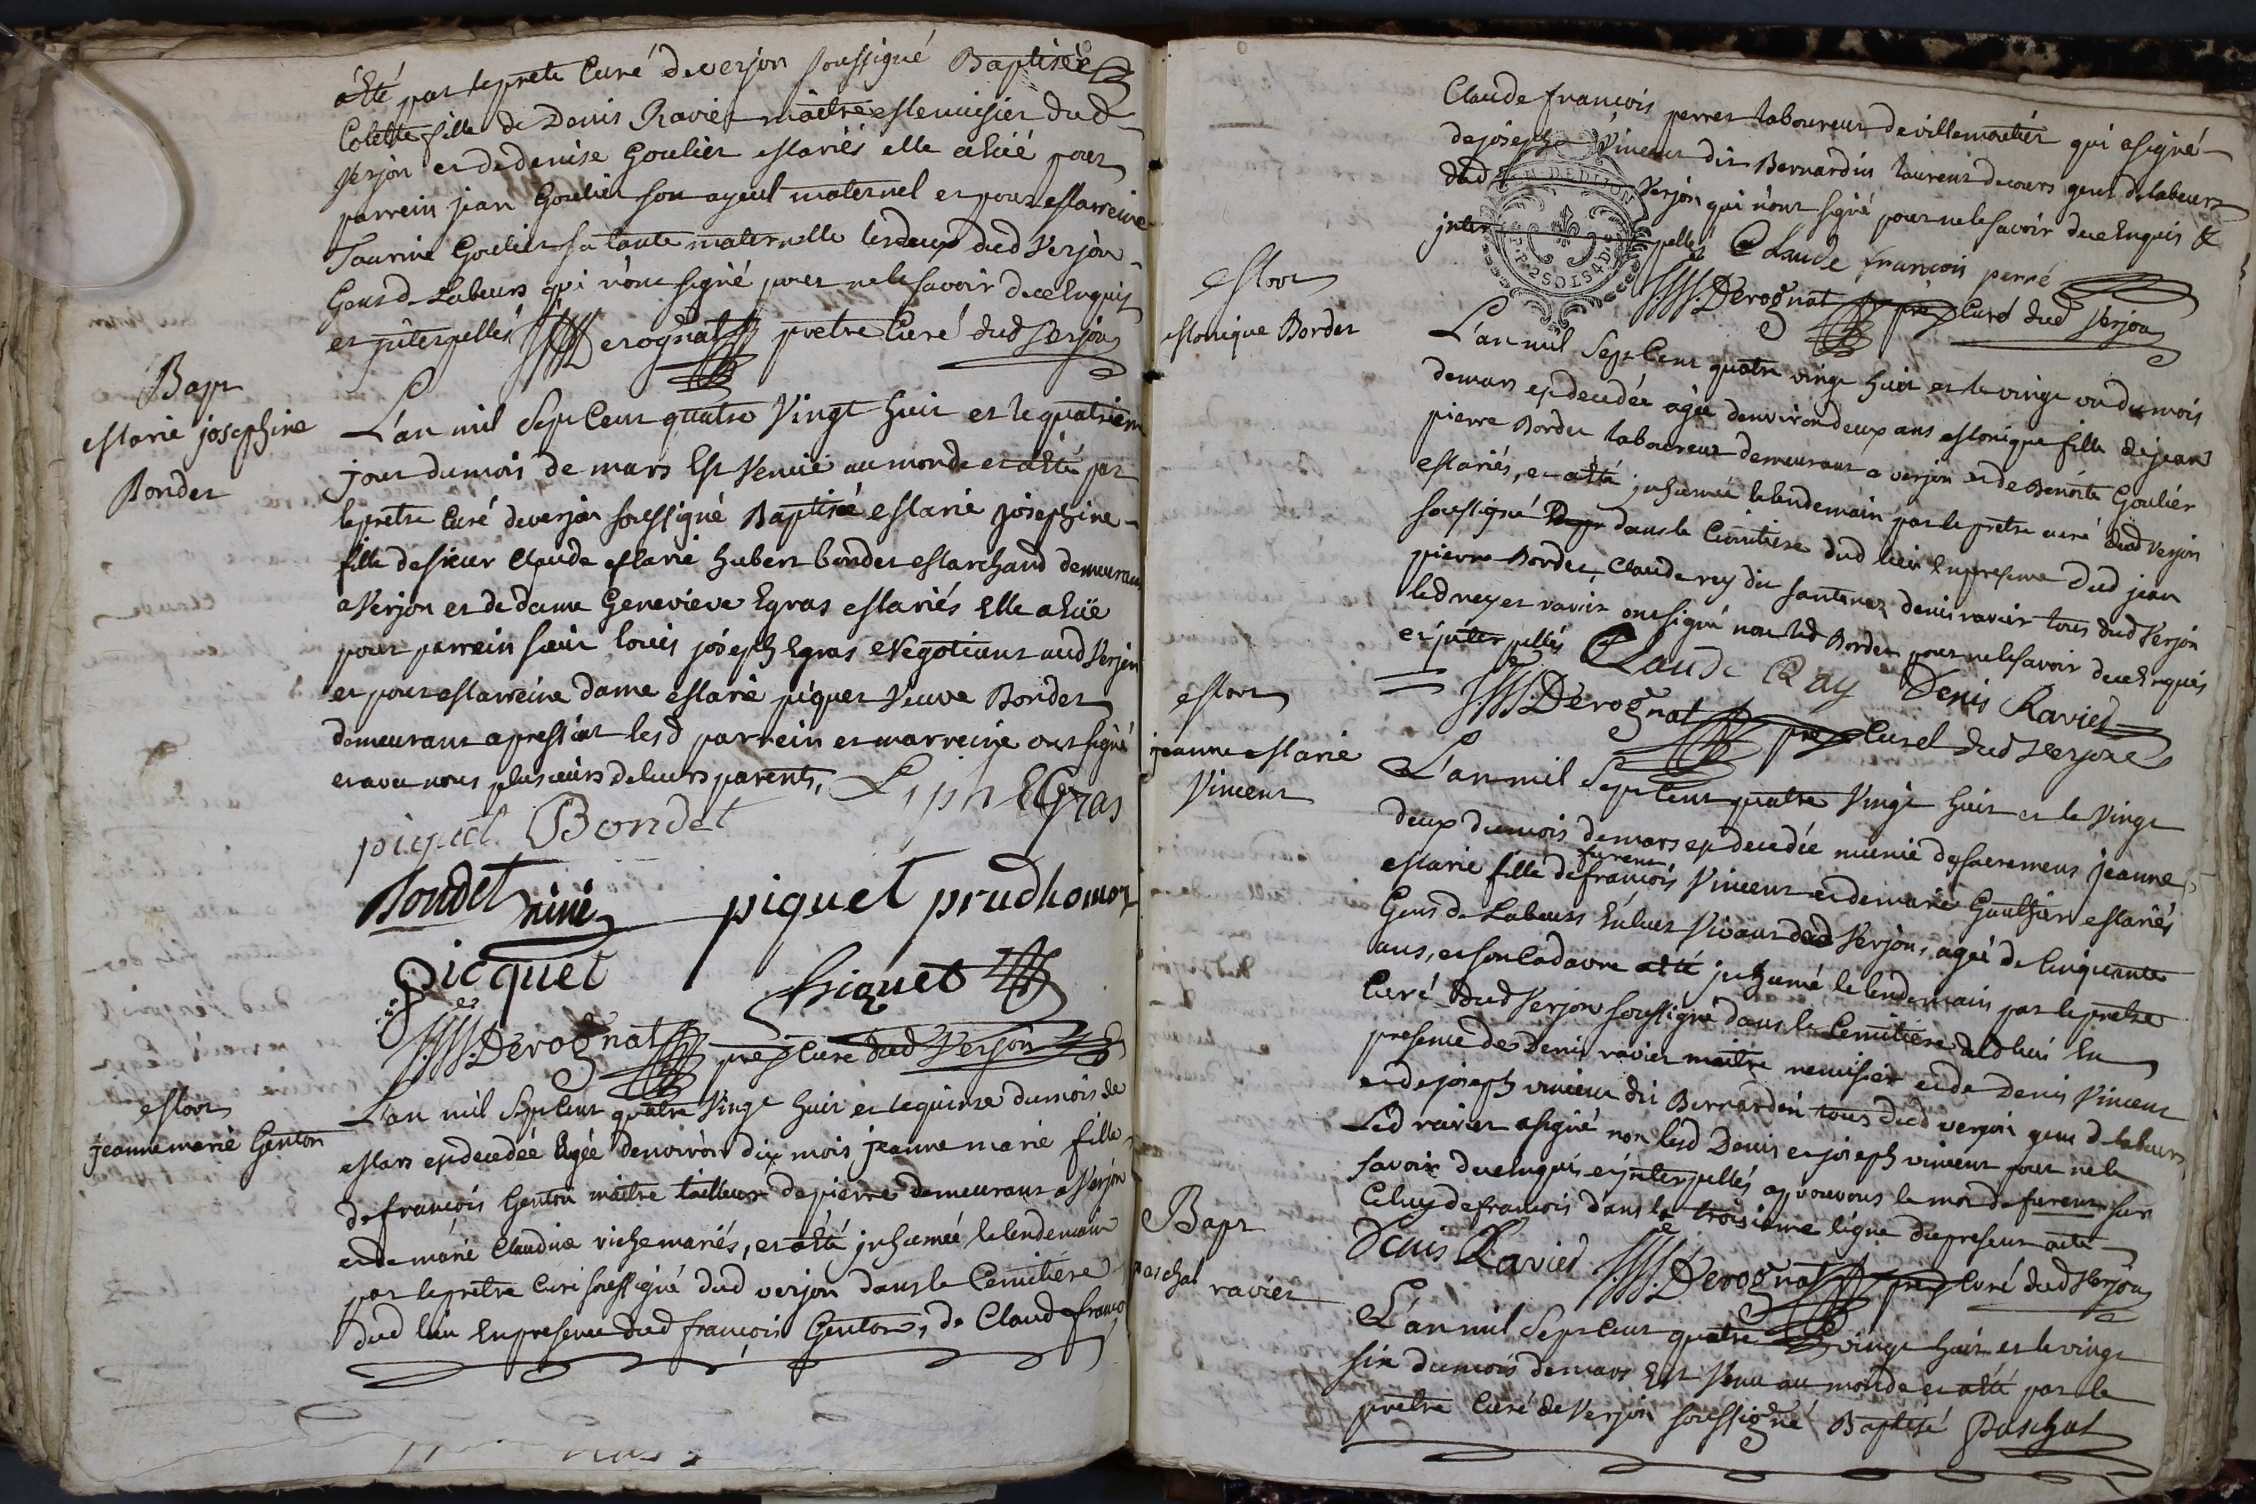 a été par le prêtre Curé de verjon soussigné Baptisée
Colette fille de Denis Ravier maître Menuisier dud
Verjon et de denise Goulier Mariés elle a hüé pour
parrein jean Goulier son ayeul maternel et pour Marreine
Goulier sa tante maternelle les deux dud Verjon
Gens de Labeurs qui n'ont signé pour ne le savoir de ce Enquis
et interpellés Derognat pretre Curé dud Verjon
Bapt
Marie josephine
Bondet
L'an mil Sept Cent quatre Vingt huit et le quatrieme
jour du mois de mars Est Venüe au monde et a été par
le prêtre Curé de verjon soussigné Baptisée Marie josephine
fille de sieur Claude Marie hubert bondet Marchand demeurant
a Verjon et de dame Genevieve Egras Mariés Elle a hüe
pour parrein sieur louis joseph Egras Negotiant aud Verjon
et pour Marreine dame Marie piquet Veuve Bondet
demeurant a pressiat lesd parrein et marreine ont signé
et avec nous plusieurs de leurs parents,
L jph EGras
piquet Bondet
Bondet
piquet prudhomme
Picquet
Piquet
Derognat pre Curé dud Verjon
Mort
jeanne marie Genton
L'an mil Sept Cent quatre Vingt huit et le quinze du mois de
Mars est decedée Agée d'environ dix mois jeanne marie fille
de françois Genton maître tailleur de pierre demeurant a Verjon
et de marie Claudine riche mariés, et a été inhumée le lendemain
par le prêtre Curé soussigné dud verjon dans le Cemitiere
dud lieu En presence dud françois Genton, de Claude françois
Claude françois perret laboureur de villemoutier qui a signé
de joseph Vincent dit Bernardin laurent decours gens de labeurs
dud Verjon qui n'ont signé pour ne le savoir de ce Enquis &
interpellés Claude francois perré
Derognat pre Curé dud Verjon
Mort
Monique Bordet
L'an mil Sept Cent quatre vingt huit et le vingt un du mois
de mars est decedée agée d'environ deux ans Monique fille de jean
pierre Bordet laboureur demeurant a verjon et de Benoite Goulier
Mariés, et a été inhumée le lendemain par le prêtre curé dud Verjon
soussigné dans le Cimitiere dud lieu En presence dud jean
pierre Bordet, Claude rey dit santenar denis ravier tous dud Verjon
led rey et ravier ont signé non led Bordet pour ne le savoir de ce Enquis
et interpellés Claude Ray Denis Ravier
Derognat pre Curé dud Verjon
Mort
jeanne Marie
Vincent
L'an mil Sept Cent quatre Vingt huit et le Vingt
deux du mois de mars est decedée munie des sacremens jeanne
furent
Marie fille de françois Vincent et de marie Gauthier Mariés
Gens de Labeurs En leur Vivant dud Verjon, agée de Cinquante
ans, et son Cadavre a été inhumé le lendemain par le prêtre
Curé dud Verjon soussigné dans le Cemitiere dud lieu En
presence de Denis ravier maître menuisier et de Denis Vincent
et de joseph vincent dit Bernardin tous dud verjon gens de labeurs
Led ravier a signé non lesd Denis et joseph vincent pour ne le
savoir de ce Enquis et interpellés approuvons le mot de furent sur
Celuy de francois dans la troisieme ligne du present acte
Denis Ravier Derognat pre Curé dud Verjon
Bapt
paschal ravier
L'an mil Sept Cent quatre vingt huit et le vingt
six du mois de mars Est Venu au monde et a été par le
prêtre Curé de Verjon soussigné Baptisé Paschal